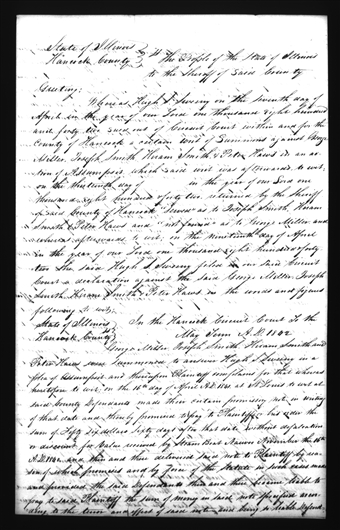 State of Illinois
Hancock County The People of the State of Illinois
to the Sheriff of said County
Greeting:
Whereas Hugh on the seventh day of
April in the year of our Lord one thousand eight hundred
and forty two sued out of Circuit Court within and for the
County of Hancock a certain writ of Summons against George
Miller, Joseph Smith Hiram Smith & Peter Haws in an ac-
tion of Assumpsit which said writ was afterwards to wit,
on the thirteenth day of in the year of our Lord one
thousand eight hundred forty two returned by the Sheriff
of said County of Hancock "served" as to Joseph Smith, Hiram
Smith & Peter Haws and "not found" as to George Miller and
whereas afterwards to wit, on the nineteenth day of April
in the year of our Lord one thousand eight hundred & forty
two the said Hugh filed in our said Circuit
Court a declaration against the said George Miller Joseph
Smith Hiram Smith & Peter Haws in the words and figures
following to wit,
State of Illinois In the Hancock Circuit Court To the
Hancock County May Term A.D. 1842
George Miller Joseph Smith Hiram Smith and
Peter Haws were summoned to answer Hugh in a
plea of Assumpsit and thereupon Plaintiff complains for that whereas
heretofore to wit, on the 16th day of April A.D. 1841 at St Louis to wit at
said County Defendants made their certain promissory note in writing
of that date and thereby promised to pay to Plaintiff
sum of Fifty six dollars sixty days after that date without defalcation
or discount for value received
A.D. 1841 and then and there delivered said note to Plaintiff by rea-
son of which premises and by force of the Statute in such cases made
and provided, the said defendants then and there became liable to
pay to said Plaintiff the sum of money in said note specified accor-
ding to the tenor and effect of said note and being so liable Defend-